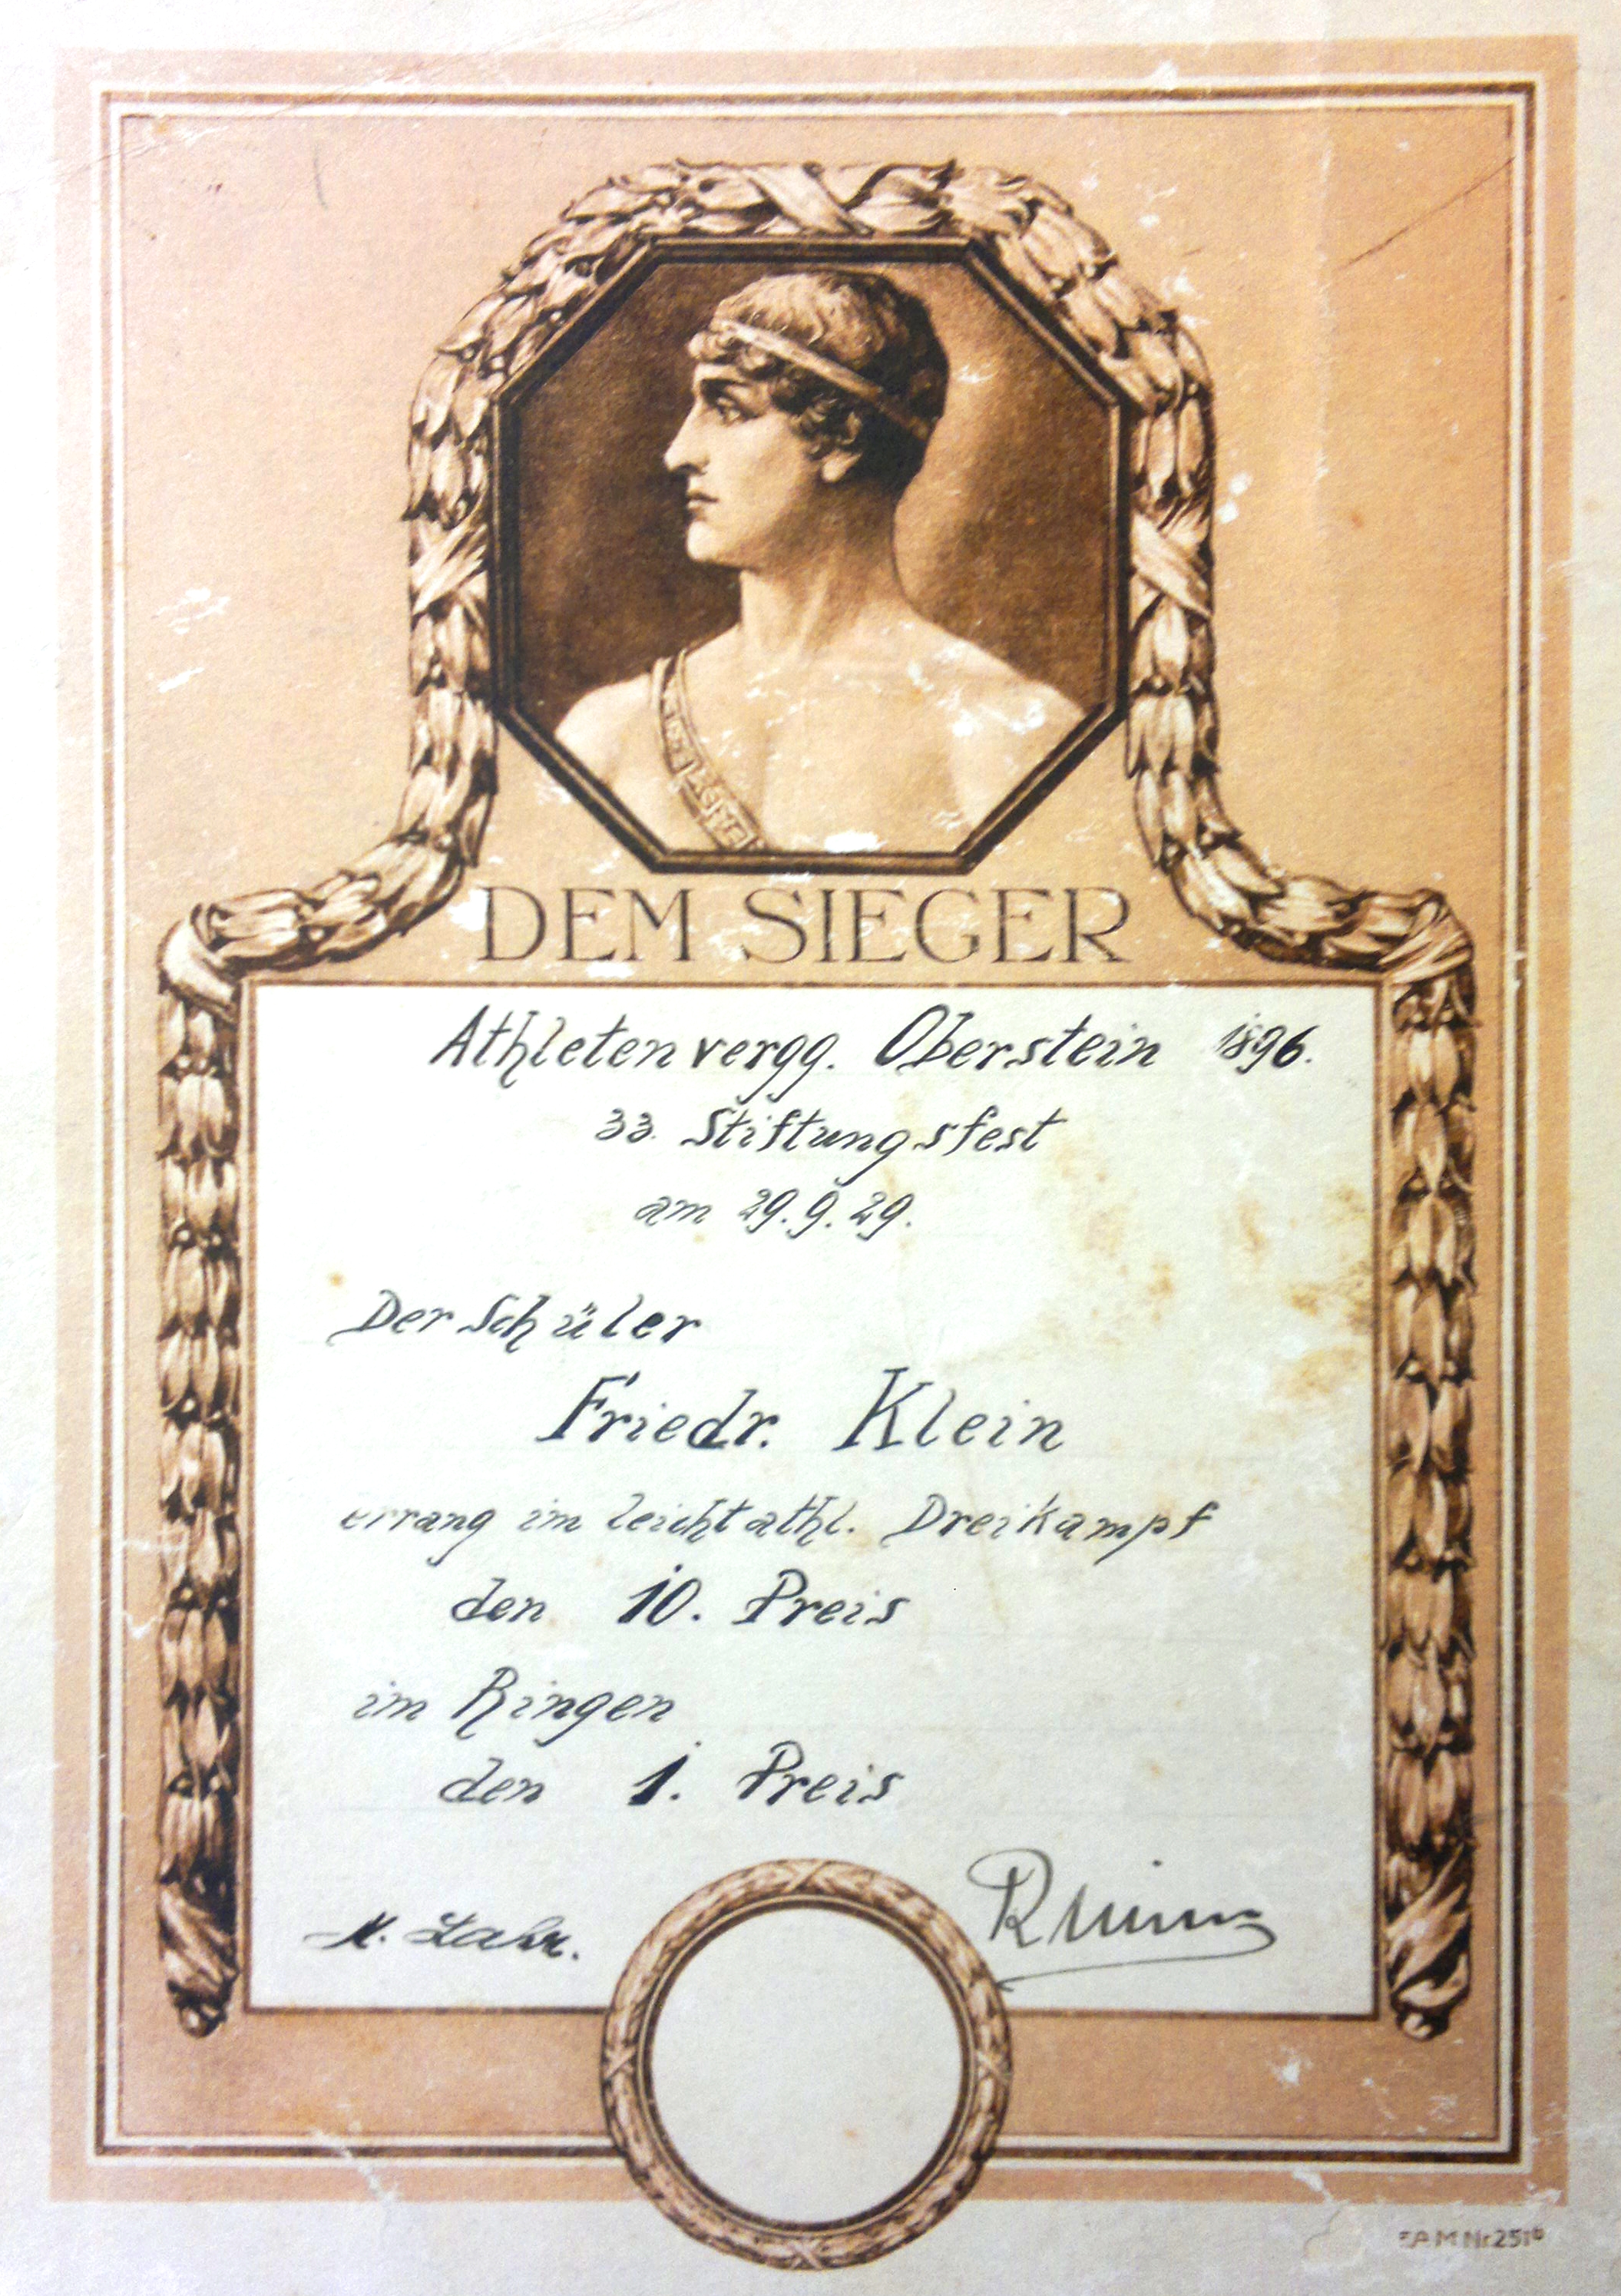 DEM SIEGER
Athletenvergg. Oberstein 1896.
33. Stiftungsfest
am 29.9.29.
Der Schüler
Friedr. Klein
errang im leichtathl. Dreikampf
den 10. Preis
im Ringen
den 1. Preis